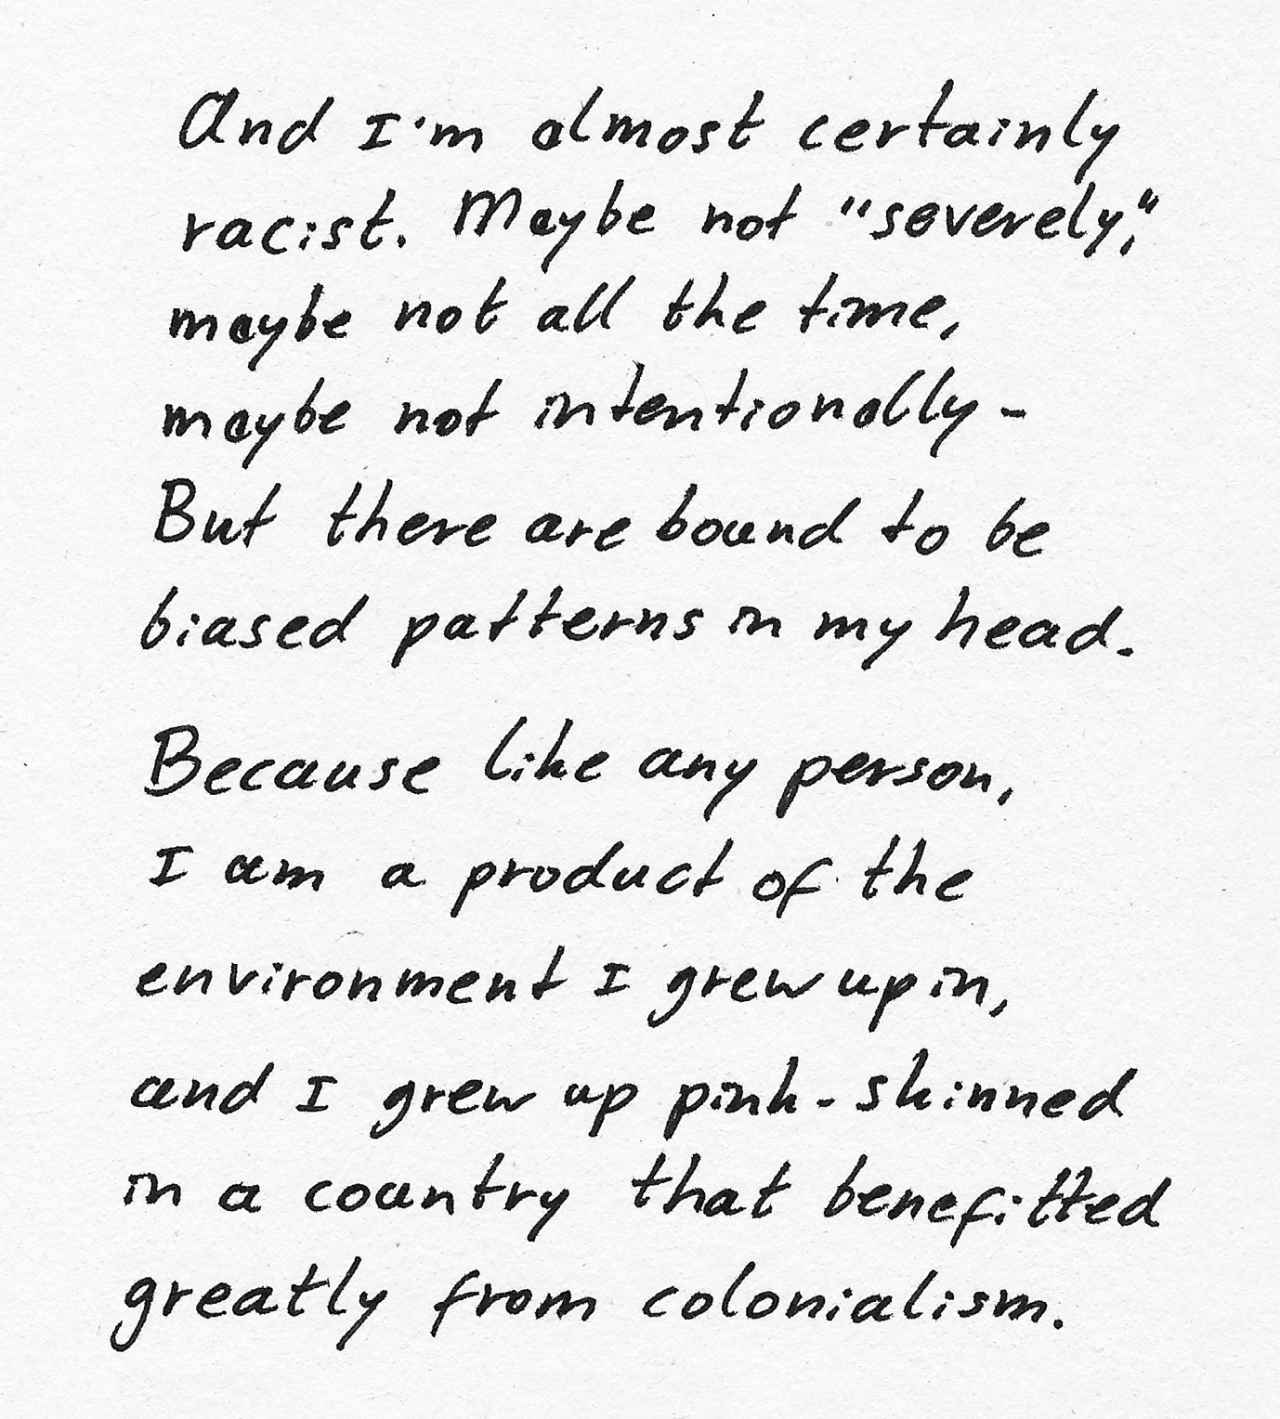 And I'm almost certainly
racist. Maybe not "severely,"
maybe not all the time,
maybe not intentionally -
But there are bound to be
biased patterns in my head.
Because like any person,
I am a product of the
environment I grew up in,
and I grew up pink-skinned
in a country that benefitted
greatly from colonialism.